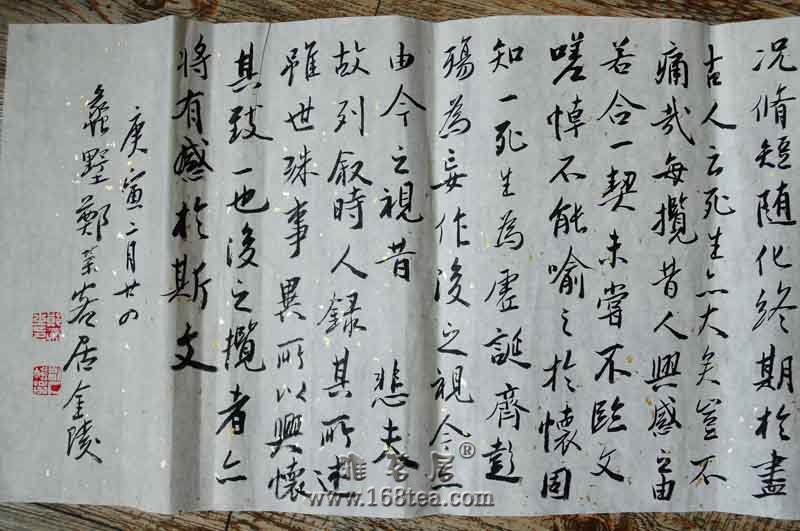 况脩短随化終期於盡
古人云死生亦大矣豈不
痛哉每攬昔人興感之由
若合一契未嘗不臨文
嗟悼不能喻之於懷固
知一死生為虛誕齊彭
殤為妄作後之視今亦
由今之視昔 悲夫
故列叙時人錄其所述
雖世殊事異所以興懷
其致一也後之攬者亦
將有感於斯文
庚寅二月廿四
鄭 居金陵
雅客居®
www.168tea.com